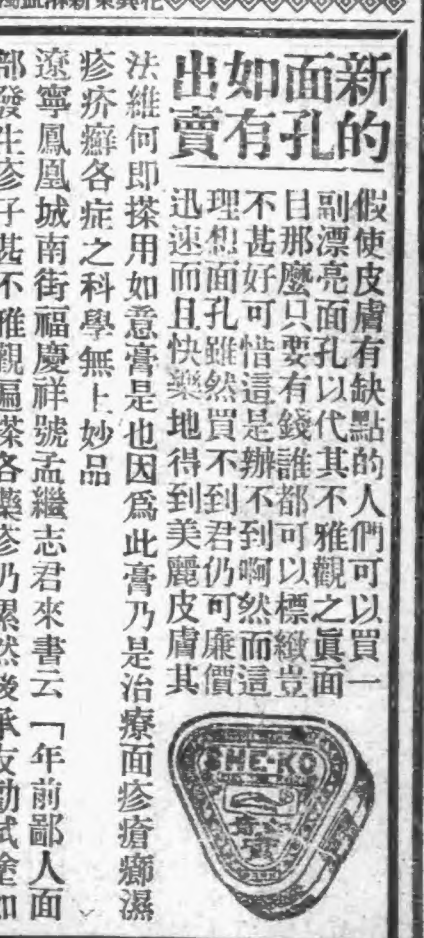 新的
面孔
如有
出賣
假使皮膚有缺點的人們可以買一
副漂亮面孔以代其不雅觀之眞面
目那麼只要有錢誰都可以標緻豈
不甚好可惜這是辦不到啊然而這
理想面孔雖然買不到君仍可廉價
迅速而且快樂地得到美麗皮膚其
SHE-KO
法維何即搽用如意膏是也因爲此膏乃是治療面疹瘡癤濕
疹疥癬各症之科學無上妙品
遼寧鳳凰城南街福慶祥號孟繼志君來書云「年前鄙人面
部發生疹子甚不雅觀遍搽各藥疹乃累然後承友勸試塗如